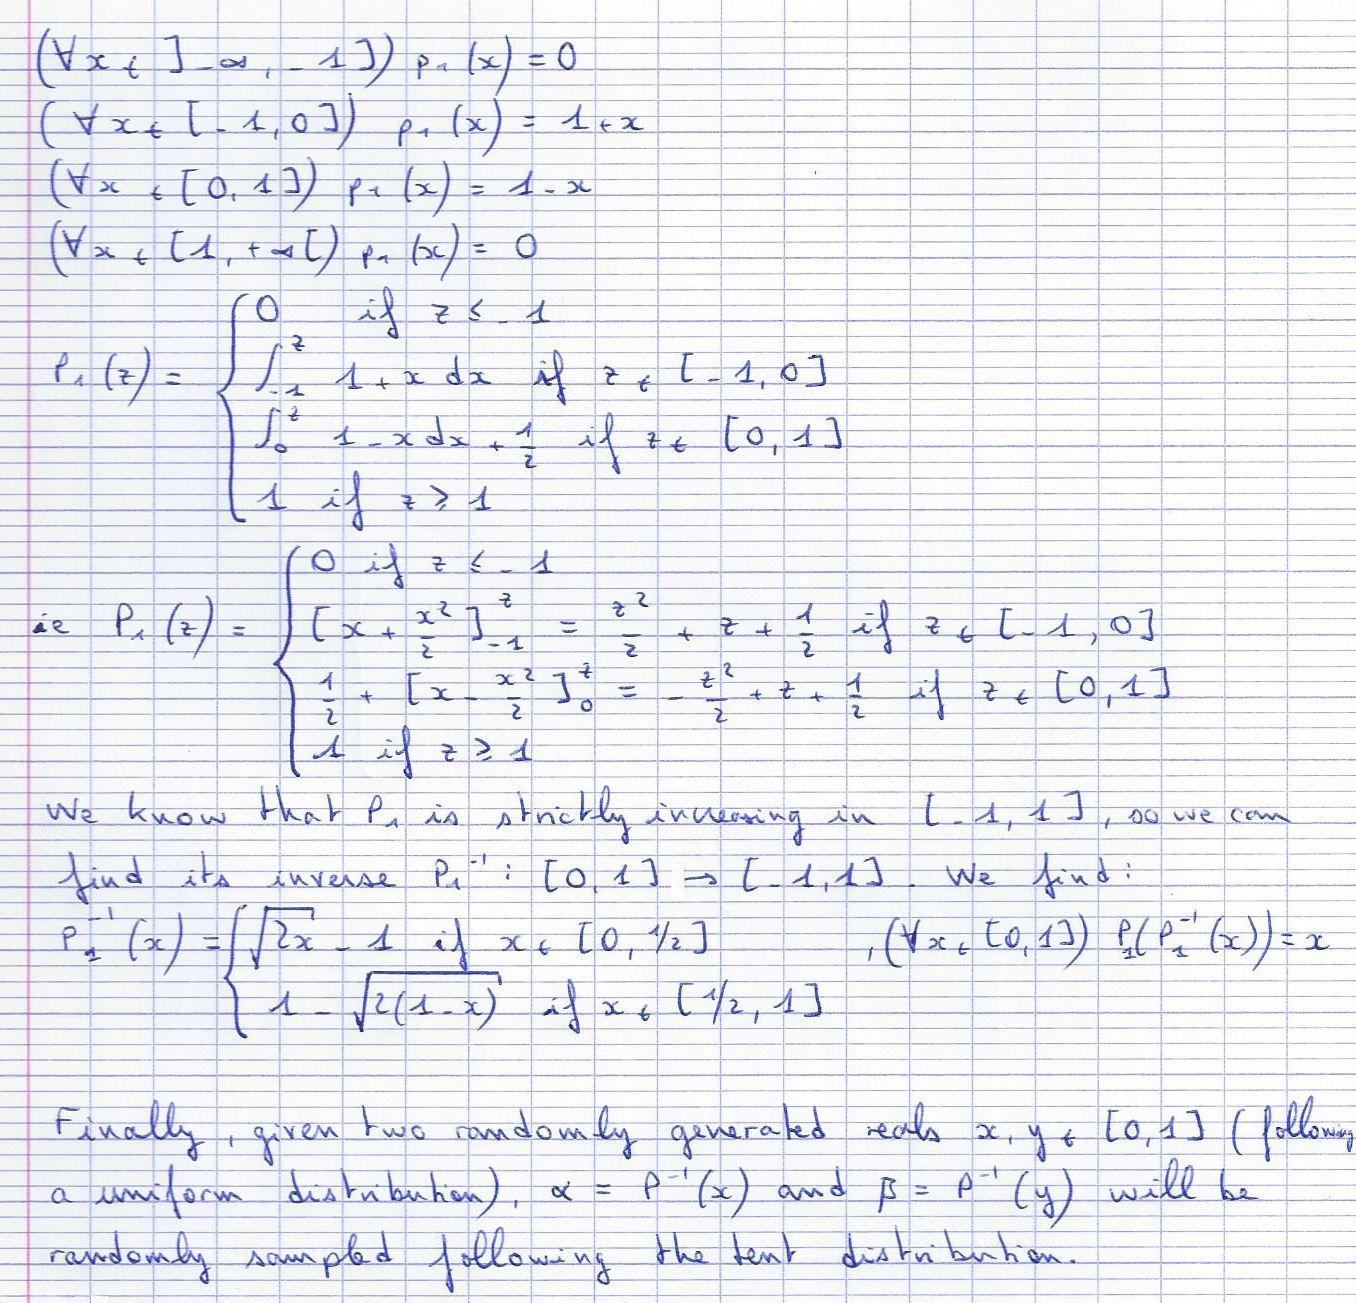 (∀x ∈ ]-∞, -1]) p₁(x) = 0
(∀x ∈ [-1, 0]) p₁(x) = 1 + x
(∀x ∈ [0, 1]) p₁(x) = 1 - x
(∀x ∈ [1, +∞[) p₁(x) = 0
P₁(z) = { 0 if z ≤ -1
∫₋₁ᶻ 1 + x dx if z ∈ [-1, 0]
∫₀ᶻ 1 - x dx + 1/2 if z ∈ [0, 1]
1 if z ≥ 1
ie P₁(z) = { 0 if z ≤ -1
[x + x²/2]₋₁ᶻ = z²/2 + z + 1/2 if z ∈ [-1, 0]
1/2 + [x - x²/2]₀ᶻ = -z²/2 + z + 1/2 if z ∈ [0, 1]
1 if z ≥ 1
We know that P₁ is strictly increasing in [-1, 1], so we can
find its inverse P₁⁻¹ : [0, 1] → [-1, 1]. We find:
P₁⁻¹(x) = { √(2x) - 1 if x ∈ [0, 1/2] , (∀x ∈ [0, 1]) P₁(P₁⁻¹(x)) = x
1 - √(2(1-x)) if x ∈ [1/2, 1]
Finally, given two randomly generated reals x, y ∈ [0, 1] (following
a uniform distribution), α = P⁻¹(x) and β = P⁻¹(y) will be
randomly sampled following the tent distribution.